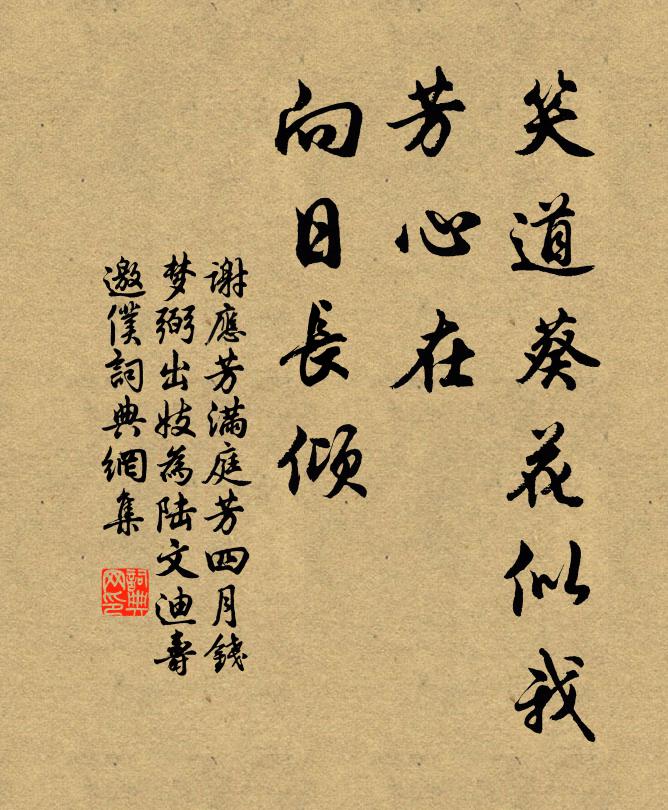 笑道葵花似我
芳心在
向日長傾
謝應芳滿庭芳四月錢
梦弼出妓為陆文迪壽
邀僕詞典網集
詞典
网印